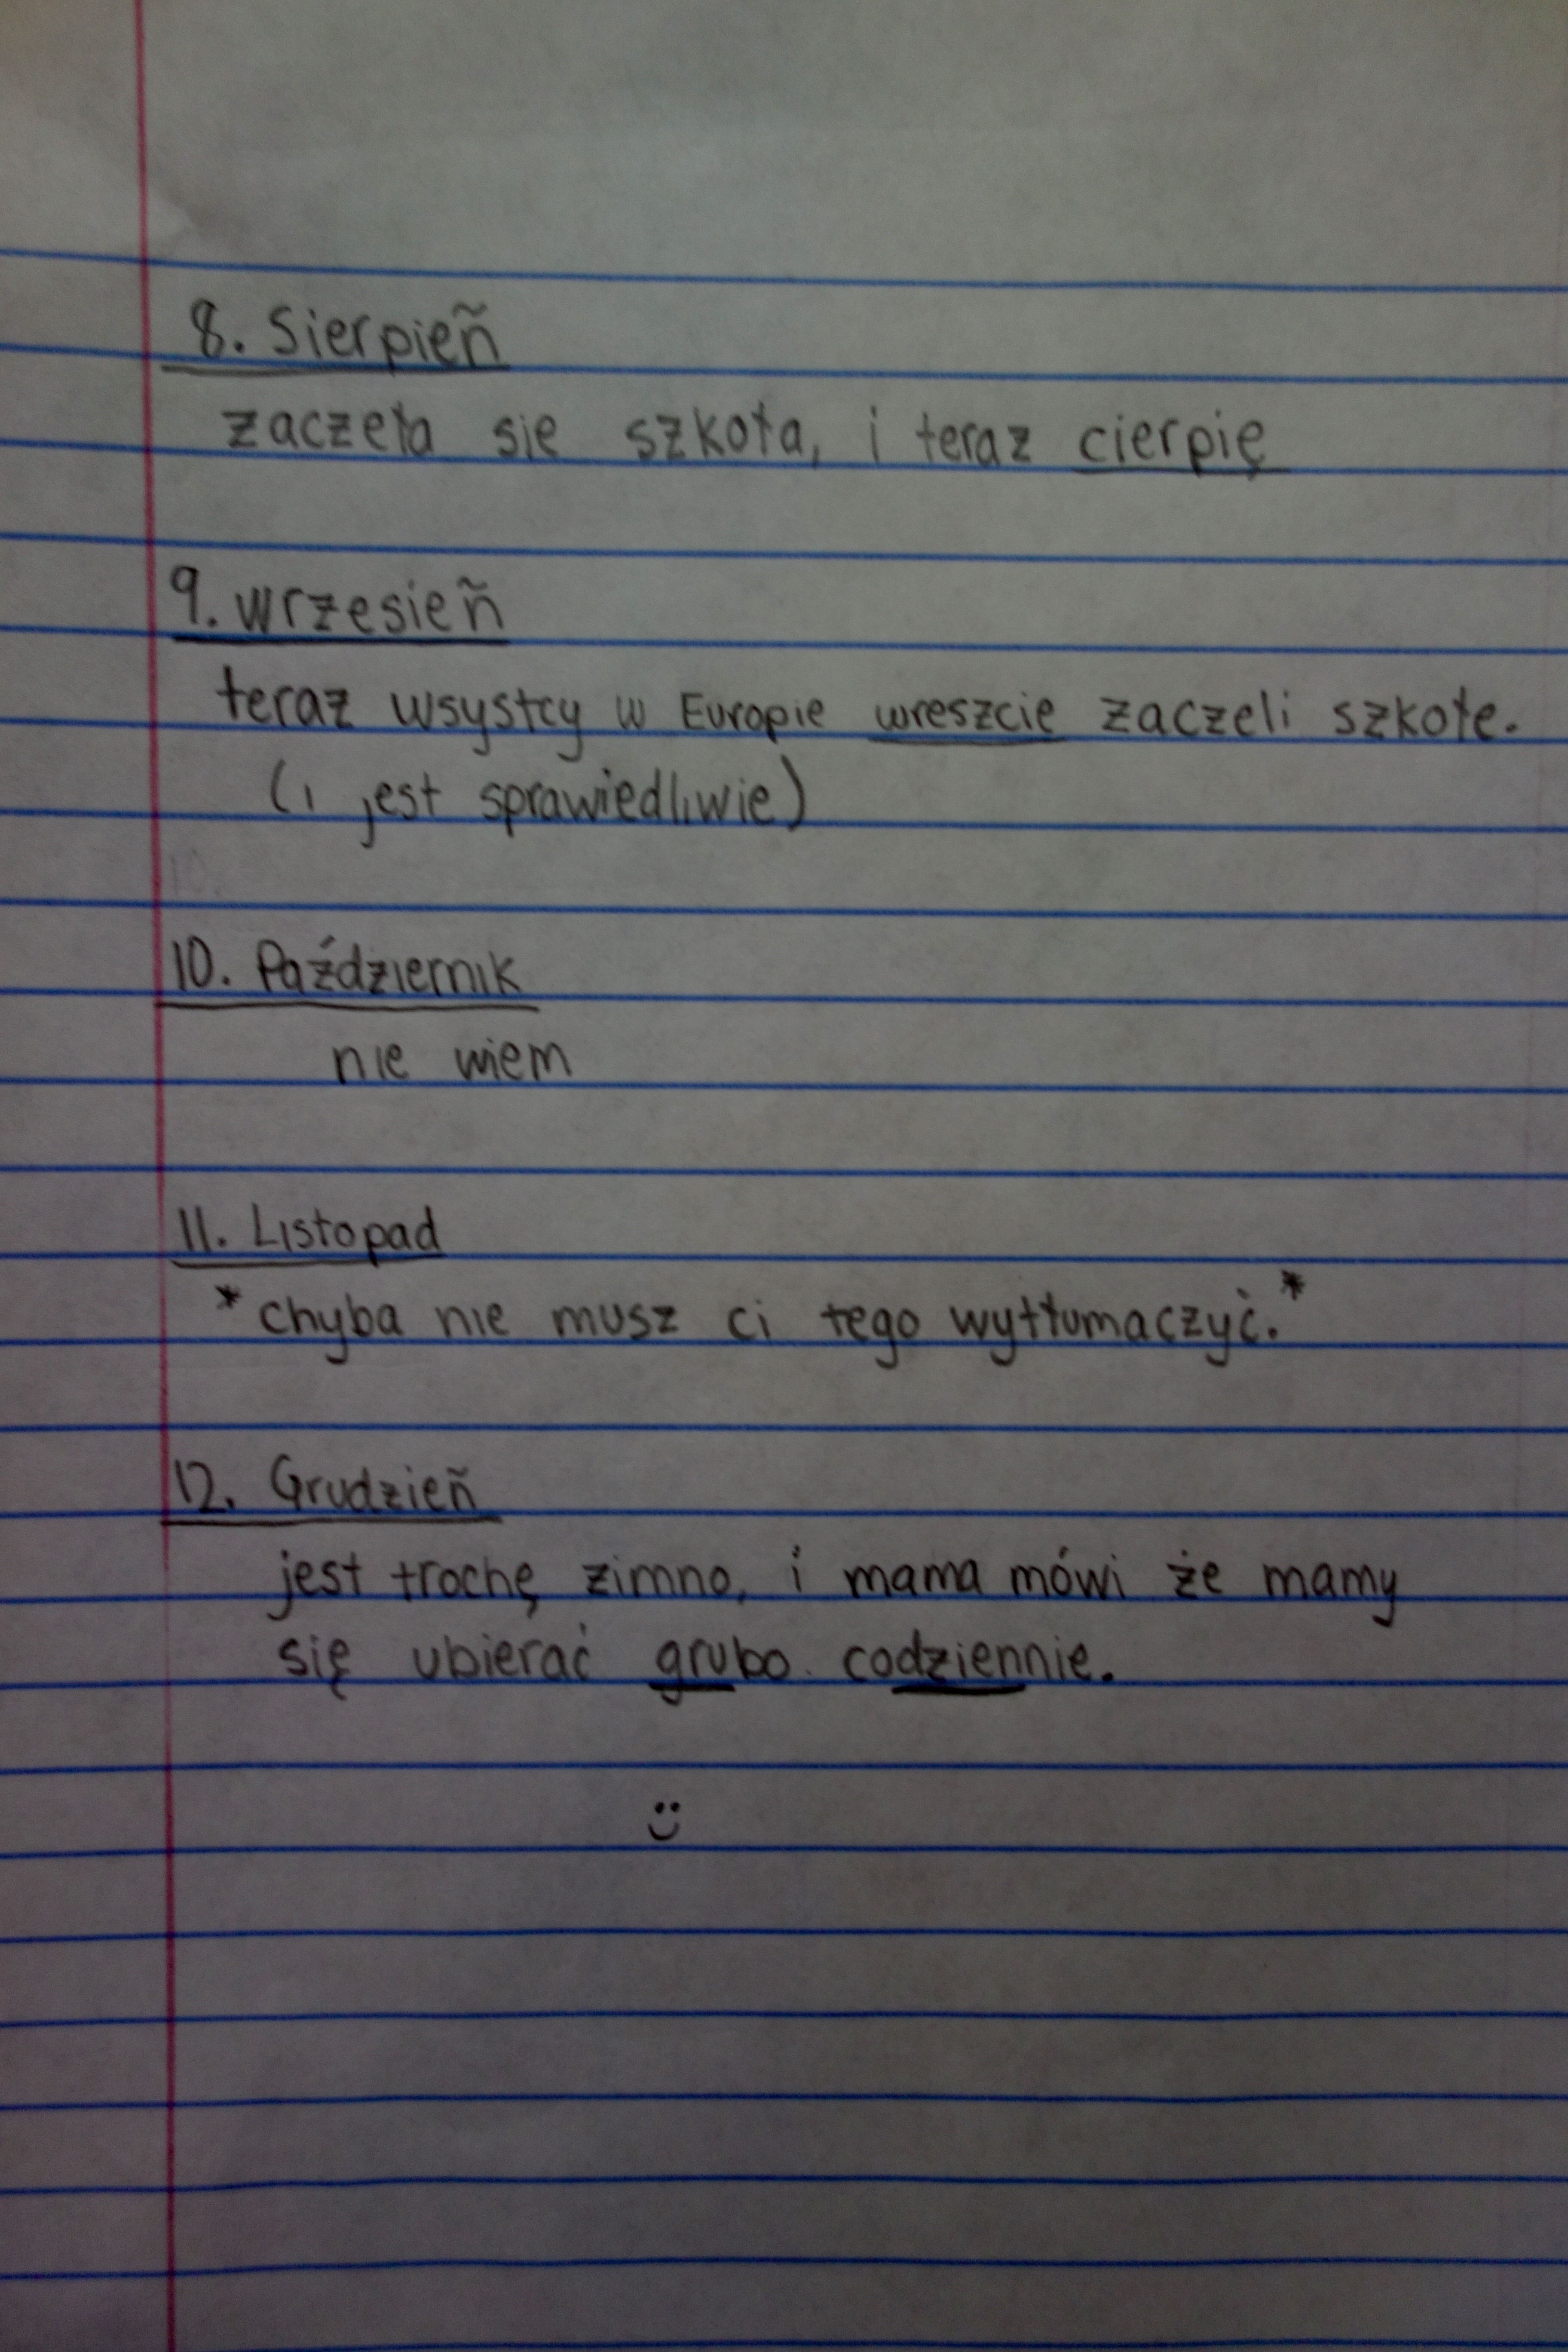 8. Sierpień̃
zaczeła sie szkoła, i teraz cierpię
9. wrzesień̃
teraz wsystcy w Europie wreszcie zaczeli szkołe.
(i jest sprawiedliwie)
10.
10. Październik
nie wiem
11. Listopad
*chyba nie musz ci tego wytłumaczyć.*
12. Grudzień̃
jest trochę zimno, i mama mówi że mamy
się ubierać grubo codziennie.